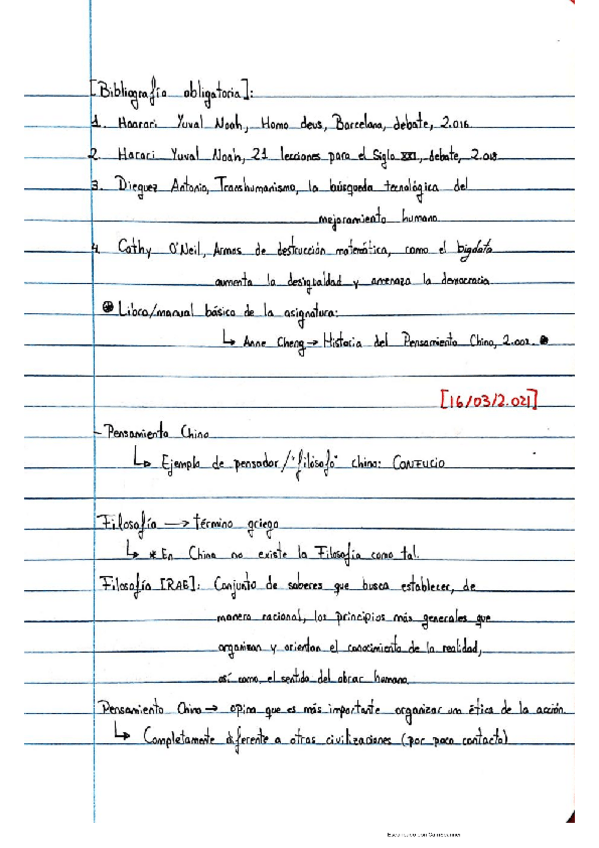 [Bibliografía obligatoria]:
1. Haarari Yuval Noah, Homo deus, Barcelona, debate, 2.016.
2. Harari Yuval Noah, 21 lecciones para el Siglo XXI, debate, 2.018
3. Dieguez Antonio, Transhumanismo, la búsqueda tecnológica del
mejoramiento humano.
4. Cathy O'Neil, Armas de destrucción matemática, como el bigdata
aumenta la desigualdad y amenaza la democracia
Libro/manual básico de la asignatura:
↳ Anne Cheng → Historia del Pensamiento Chino, 2.002.
[16/03/2.021]
- Pensamiento Chino
↳ Ejemplo de pensador/"filósofo" chino: CONFUCIO
Filosofía → término griego
↳ * En China no existe la Filosofía como tal.
Filosofía [RAE]: Conjunto de saberes que busca establecer, de
manera racional, los principios más generales que
organizan y orientan el conocimiento de la realidad,
así como, el sentido del obrar humano.
Pensamiento Chino → opina que es más importante organizar un ética de la acción.
↳ Completamente diferente a otras civilizaciones (por poco contacto)
Escaneado con CamScanner